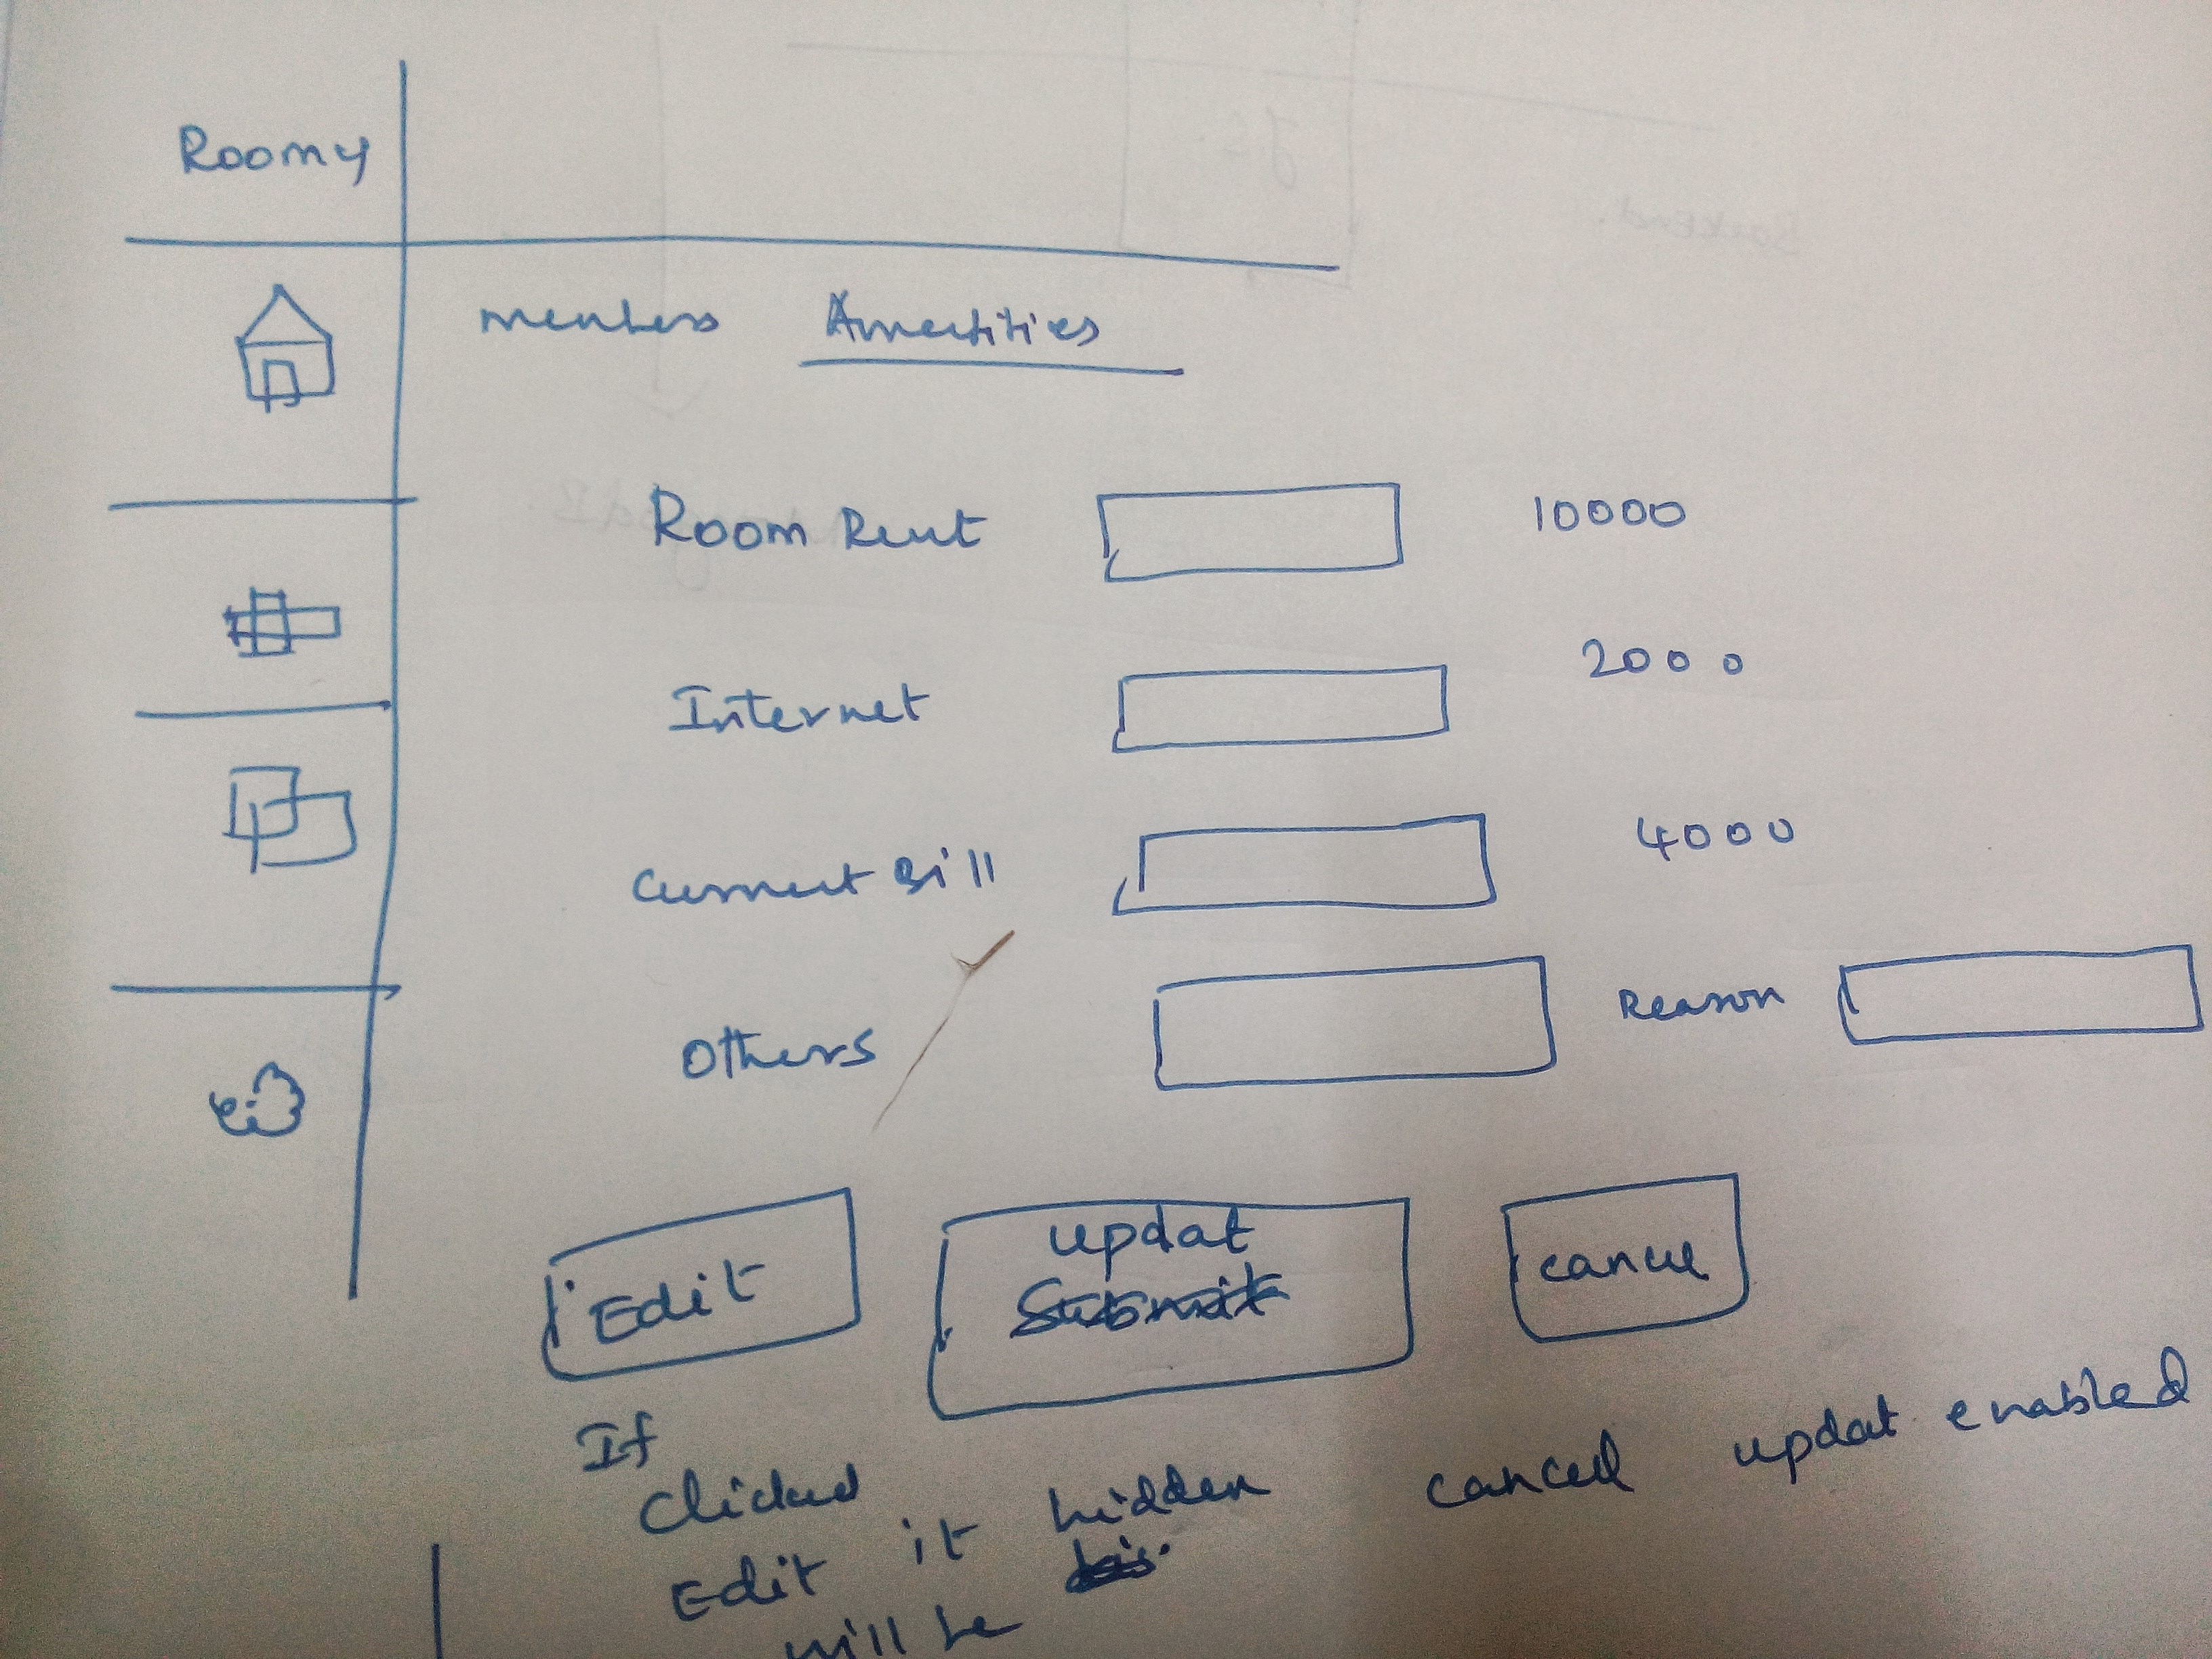 Roomy
members Amentities
Room Rent 10000
Internet 2000
Current Bill 4000
Others Reason
Edit
updat
Submit
cancel
If
Clicked
Edit it hidden
will be
cancel updat enabled